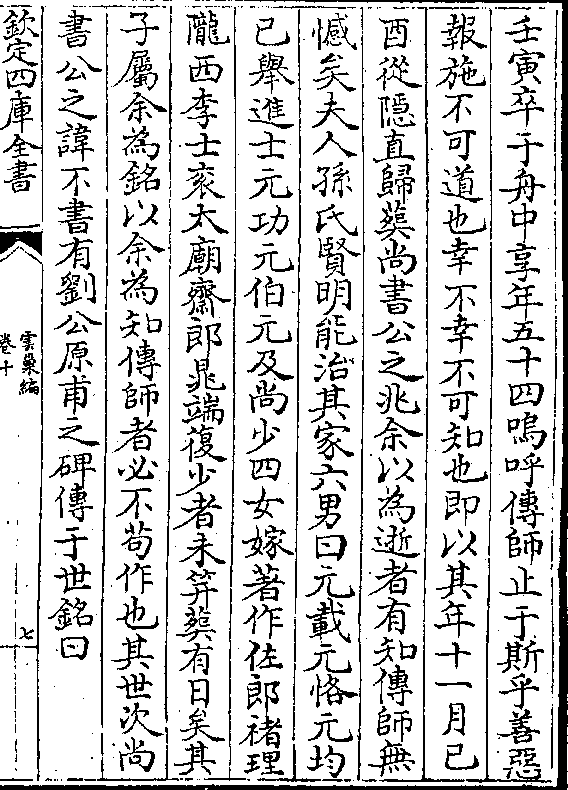 壬寅卒于舟中享年五十四嗚呼傳師止于斯乎善惡
報施不可道也幸不幸不可知也即以其年十一月己
酉從隱直歸葬尚書公之兆余以為逝者有知傳師無
憾矣夫人孫氏賢明能治其家六男曰元載元恪元均
已舉進士元功元伯元及尚少四女嫁著作佐郎禇理
隴西李士衮太廟齋郎晁端復少者未笄葬有日矣其
子屬余為銘以余為知傳師者必不苟作也其世次尚
書公之諱不書有劉公原甫之碑傳于世銘曰
欽定四庫全書
雲巢編
卷十
七